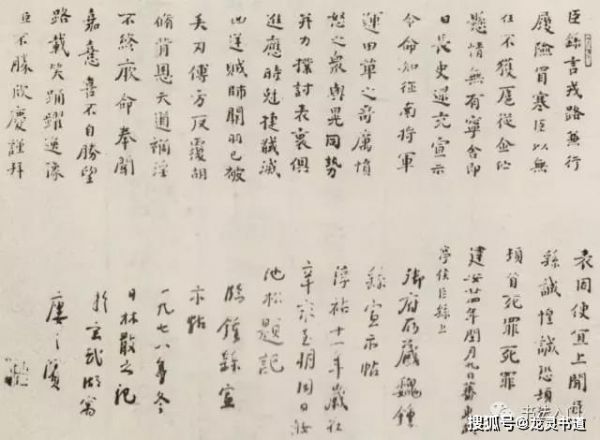 臣繇言戎路兼行
履險冒寒臣以無
任不獲扈從企佇
懸情無有寧舍即
日長史逯充宣示
令命知征南將軍
運田單之奇厲憤
怒之衆與晃同勢
并力撲討表裏俱
進應時剋捷馘滅
凶逆賊帥關羽已被
矢刃傅方反覆胡
脩背恩天道禍淫
不終厥命奉聞
嘉憙喜不自勝望
路載笑踊躍逸豫
臣不勝欣慶謹拜
表因便宜上聞臣
繇誠惶誠恐頓
頓首死罪死罪
建安廿四年閏月九日蕃東
亭侯臣繇上
御府所藏魏鍾
繇宣示帖
淳祐十一年歲在
辛亥
池松題記
臨鍾繇宣
示帖
一九七八年冬
日林散之記
於玄武湖寓
廔之濱
搜狐号@龙灵书道